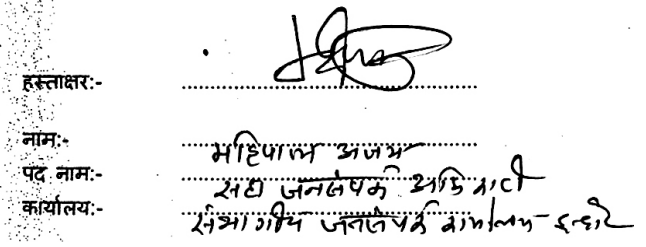 हस्ताक्षर:-
नाम:- महिपाल अजय
पद नाम:- सहा जनसंपर्क अधिकारी
कार्यालय:- संभागीय जनसंपर्क कार्यालय इन्दौर